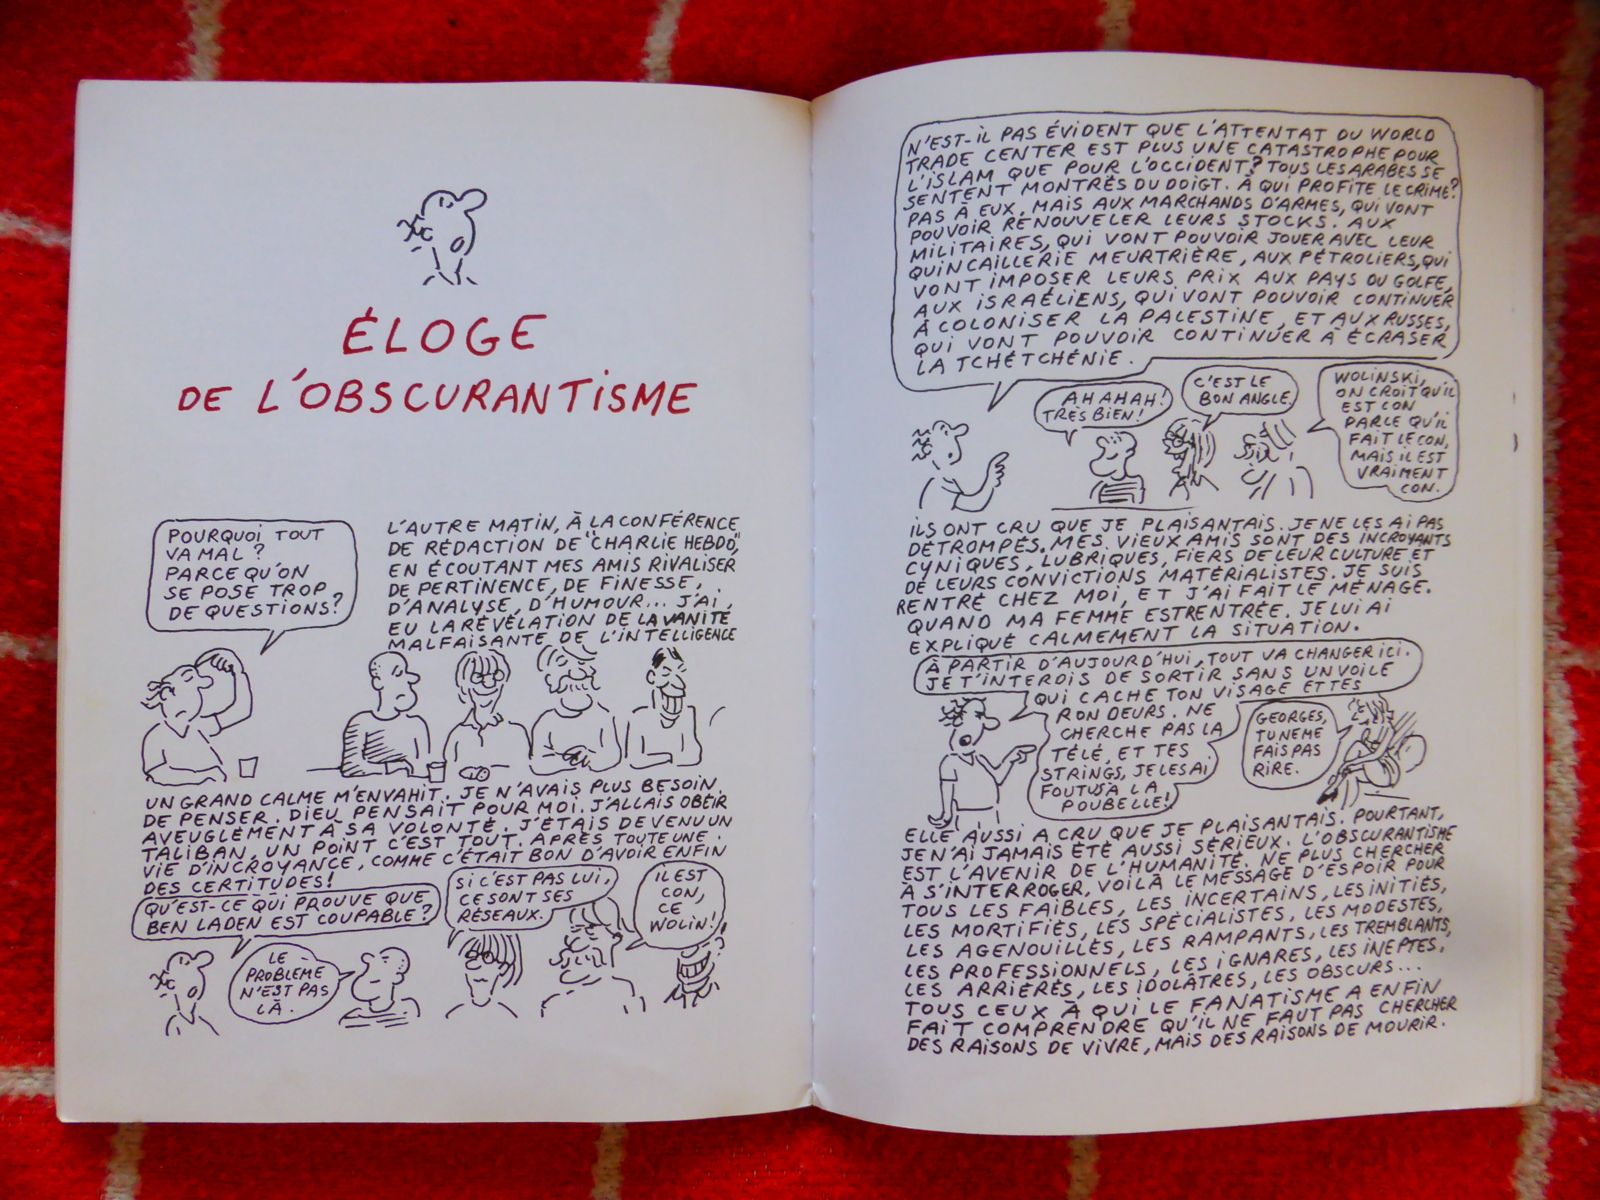 ÉLOGE
DE L'OBSCURANTISME
POURQUOI TOUT
VA MAL ?
PARCE QU'ON
SE POSE TROP
DE QUESTIONS?
L'AUTRE MATIN, À LA CONFÉRENCE
DE RÉDACTION DE "CHARLIE HEBDO",
EN ÉCOUTANT MES AMIS RIVALISER
DE PERTINENCE, DE FINESSE,
D'ANALYSE, D'HUMOUR... J'AI,
EU LA RÉVÉLATION DE LA VANITÉ
MALFAISANTE DE L'INTELLIGENCE
UN GRAND CALME M'ENVAHIT. JE N'AVAIS PLUS BESOIN
DE PENSER. DIEU PENSAIT POUR MOI. J'ALLAIS OBÉIR
AVEUGLÉMENT À SA VOLONTÉ. J'ÉTAIS DEVENU UN
TALIBAN, UN POINT C'EST TOUT. APRÈS TOUTE UNE
VIE D'INCROYANCE, COMME C'ÉTAIT BON D'AVOIR ENFIN
DES CERTITUDES!
QU'EST-CE QUI PROUVE QUE
BEN LADEN EST COUPABLE ?
LE
PROBLEME
N'EST PAS
LÀ.
SI C'EST PAS LUI,
CE SONT SES
RÉSEAUX.
IL EST
CON,
CE
WOLIN!
N'EST-IL PAS ÉVIDENT QUE L'ATTENTAT DU WORLD
TRADE CENTER EST PLUS UNE CATASTROPHE POUR
L'ISLAM QUE POUR L'OCCIDENT? TOUS LES ARABES SE
SENTENT MONTRÉS DU DOIGT. À QUI PROFITE LE CRIME?
PAS À EUX, MAIS AUX MARCHANDS D'ARMES, QUI VONT
POUVOIR RENOUVELER LEURS STOCKS. AUX
MILITAIRES, QUI VONT POUVOIR JOUER AVEC LEUR
QUINCAILLERIE MEURTRIÈRE, AUX PÉTROLIERS, QUI
VONT IMPOSER LEURS PRIX AUX PAYS DU GOLFE,
AUX ISRAÉLIENS, QUI VONT POUVOIR CONTINUER
À COLONISER LA PALESTINE, ET AUX RUSSES,
QUI VONT POUVOIR CONTINUER À ÉCRASER
LA TCHÉTCHÉNIE.
AHAHAH!
TRÈS BIEN!
C'EST LE
BON ANGLE
WOLINSKI,
ON CROIT QU'IL
EST CON
PARCE QU'IL
FAIT LE CON,
MAIS IL EST
VRAIMENT
CON.
ILS ONT CRU QUE JE PLAISANTAIS. JE NE LES AI PAS
DÉTROMPÉS. MES VIEUX AMIS SONT DES INCROYANTS
CYNIQUES, LUBRIQUES, FIERS DE LEUR CULTURE ET
DE LEURS CONVICTIONS MATÉRIALISTES. JE SUIS
RENTRÉ CHEZ MOI, ET J'AI FAIT LE MÉNAGE.
QUAND MA FEMME EST RENTRÉE. JE LUI AI
EXPLIQUÉ CALMEMENT LA SITUATION.
À PARTIR D'AUJOURD'HUI, TOUT VA CHANGER ICI.
JE T'INTERDIS DE SORTIR SANS UN VOILE
QUI CACHE TON VISAGE ET TES
RONDEURS. NE
CHERCHE PAS LA
TÉLÉ, ET TES
STRINGS, JE LES AI
FOUTUS À LA
POUBELLE!
GEORGES,
TU NE ME
FAIS PAS
RIRE.
ELLE AUSSI A CRU QUE JE PLAISANTAIS. POURTANT,
JE N'AI JAMAIS ÉTÉ AUSSI SÉRIEUX. L'OBSCURANTISME
EST L'AVENIR DE L'HUMANITÉ. NE PLUS CHERCHER
À S'INTERROGER, VOILÀ LE MESSAGE D'ESPOIR POUR
TOUS LES FAIBLES, LES INCERTAINS, LES INITIÉS,
LES MORTIFIÉS, LES SPÉCIALISTES, LES MODESTES,
LES AGENOUILLÉS, LES RAMPANTS, LES TREMBLANTS,
LES PROFESSIONNELS, LES IGNARES, LES INEPTES,
LES ARRIÉRÉS, LES IDOLÂTRES, LES OBSCURS...
TOUS CEUX À QUI LE FANATISME A ENFIN
FAIT COMPRENDRE QU'IL NE FAUT PAS CHERCHER
DES RAISONS DE VIVRE, MAIS DES RAISONS DE MOURIR.